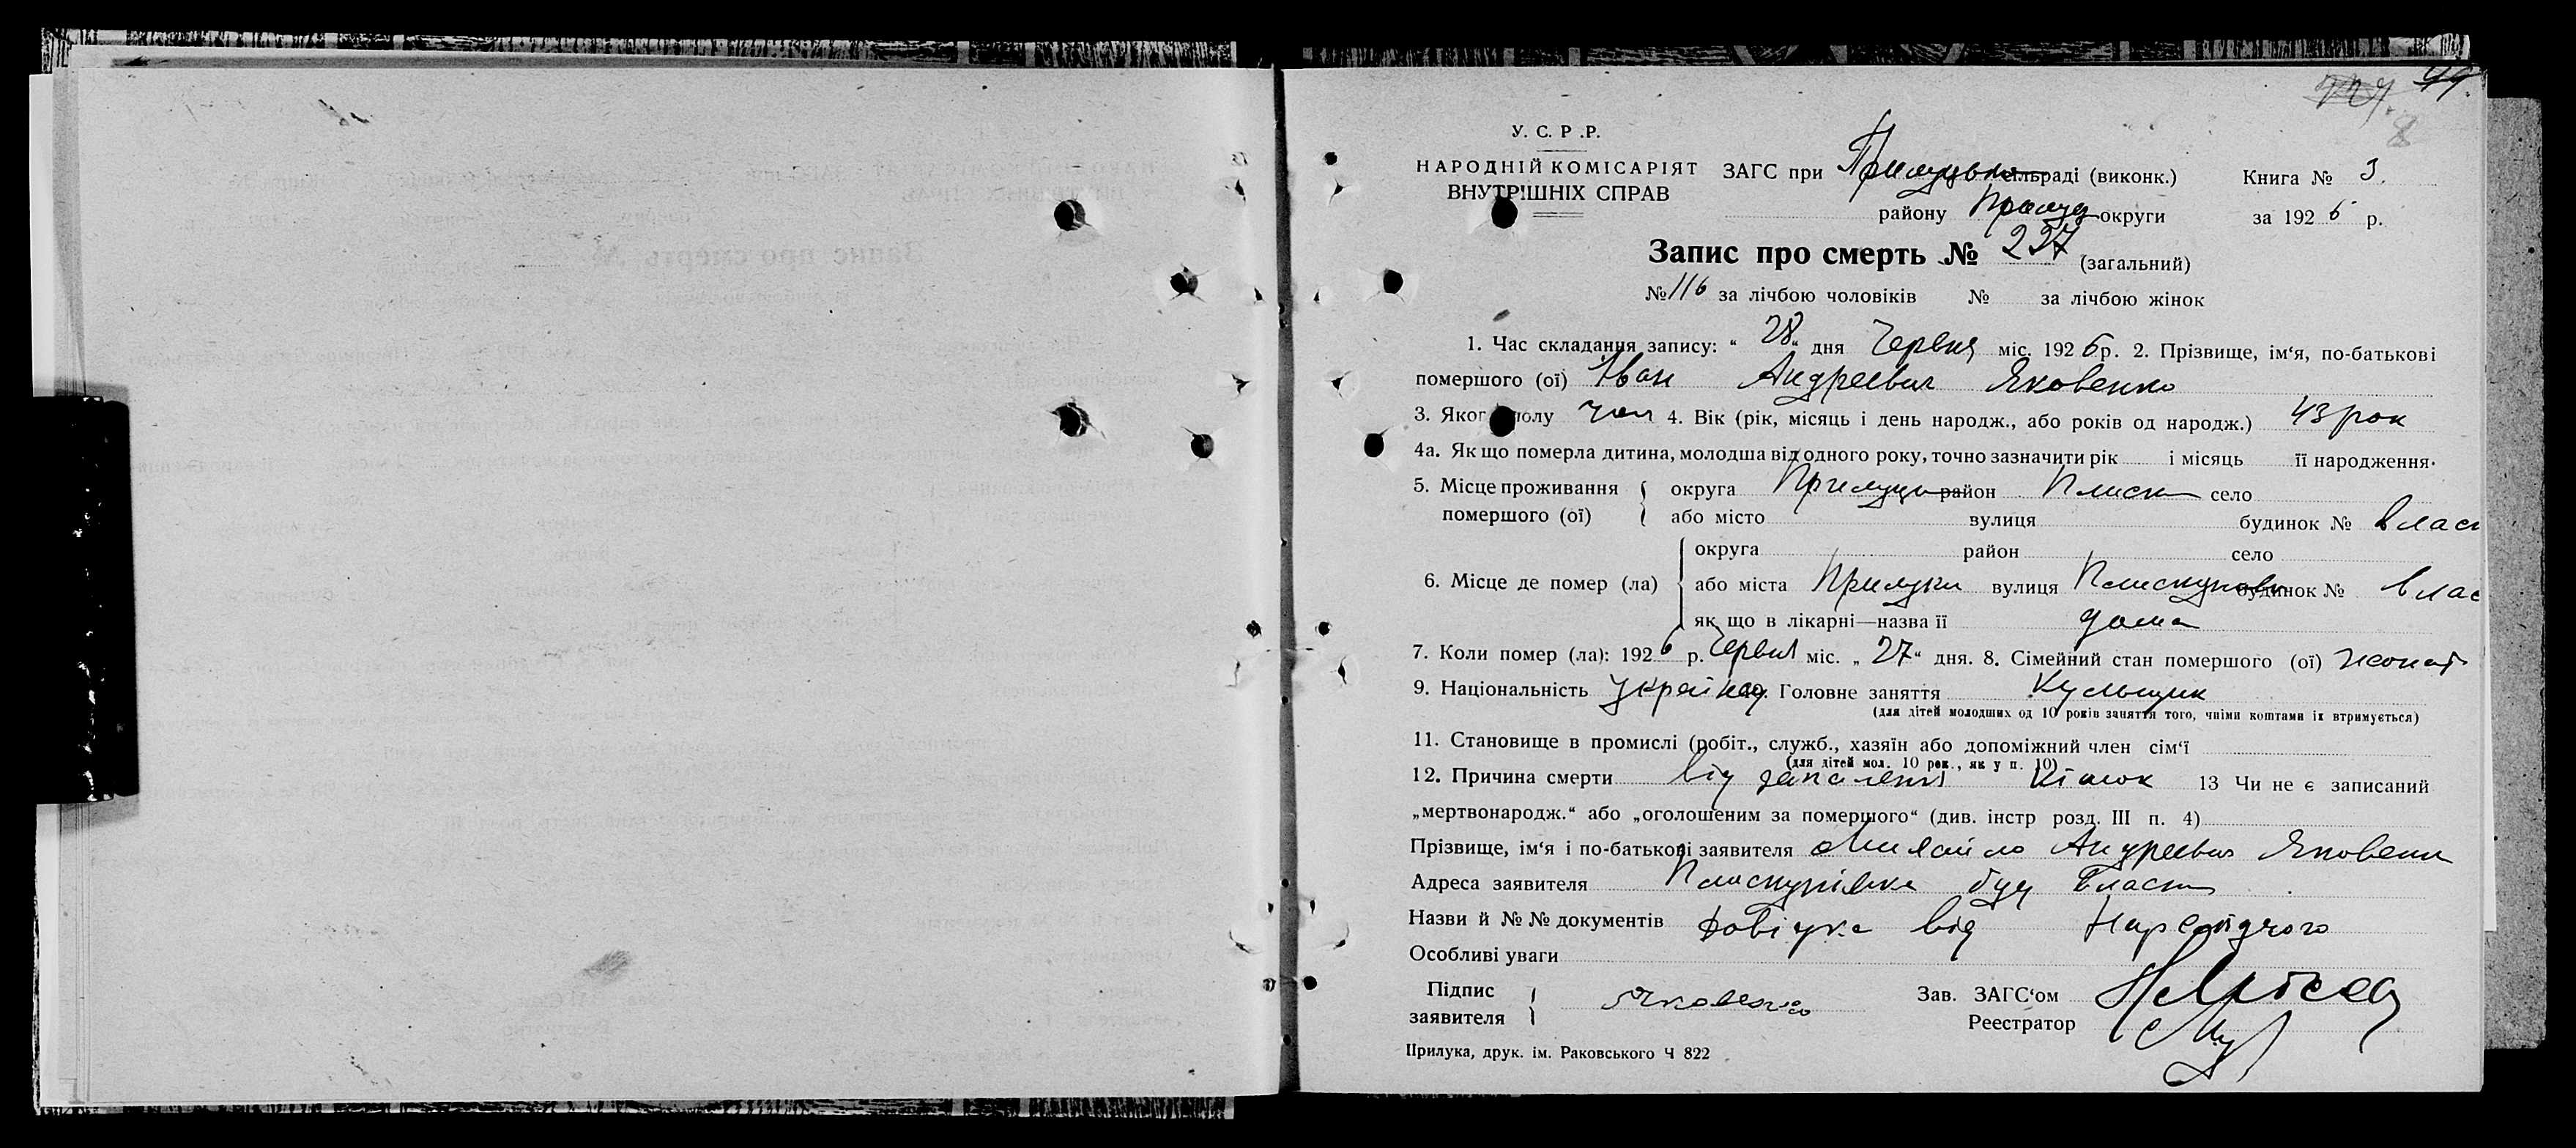 99.
У. С. Р .Р.
НАРОДНІЙ КОМІСАРІЯТ ЗАГС при сільраді (виконк.) Книга № 3.
ВНУТРІШНІХ СПРАВ
району Прилуц округи за 1926 р.
Запис про смерть № 227 (загальний)
№ 116 за лічбою чоловіків № за лічбою жінок
1. Час складання запису: “ 28 “ дня Червня міс. 1926 р. 2. Прізвище, ім‘я, по-батькові
помершого (ої) Іван Андреевич Яковенко
3. Якого полу чол 4. Вік (рік, місяць і день народж., або років од народж.) 43 рок
4а. Як що померла дитина, молодша від одного року, точно зазначити рік і місяць її народження.
5. Місце проживання округа Прилуцьк район Писк село
помершого (ої) або місто вулиця будинок № власн
округа район село
6. Місце де помер (ла) або міста Прилуки вулиця будинок № влас
як що в лікарні—назва її дома
7. Коли помер (ла): 1926 р. Червня міс. „ 27 “ дня. 8. Сімейний стан помершого (ої) жонат
9. Національність україн 10. Головне заняття
(для дітей молодших од 10 років заняття того, чиїми коштами їх втримується)
11. Становище в промислі (робіт., служб., хазяїн або допоміжний член сім‘ї
(для дітей мол. 10 рок., як у п. 10)
12. Причина смерти від запалення Кішок 13 Чи не є записаний
„мертвонародж.“ або „оголошеним за помершого“ (див. інстр розд. III п. 4)
Прізвище, ім‘я і по-батькові заявителя Михайло Андреевич Яковенко
Адреса заявителя буд власн
Назви й № № документів Довідка від Нарслідчого
Особливі уваги
Підпис
заявителя Яковенко
Зав. ЗАГС‘ом
Реестратор
Прилука, друк. ім. Раковського Ч 822